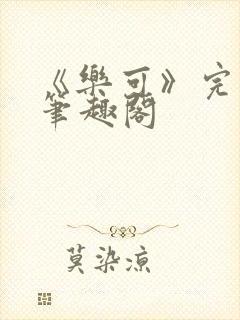 《樂可》完
筆趣閣
莫染涼